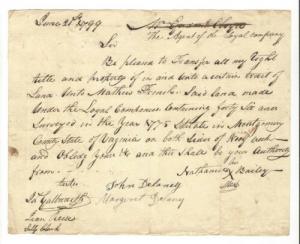 June 21st 1799
The Agent of the Loyal Company
Sir
Be pleasd to Transfer all my Right
title and property of in and unto a certain tract of
Land Unto Mathias Said Land made
Under the Loyal Companies Containing forty Six acres
Surveyed in the Year 1775 Situate in Montgomery
County State of Virginia on both Sides of
and Oblidge Yours & and this Shall be your Authority
from
his
Nathaniel Bailey
Mark
teste
John Delaney
Margaret Delany